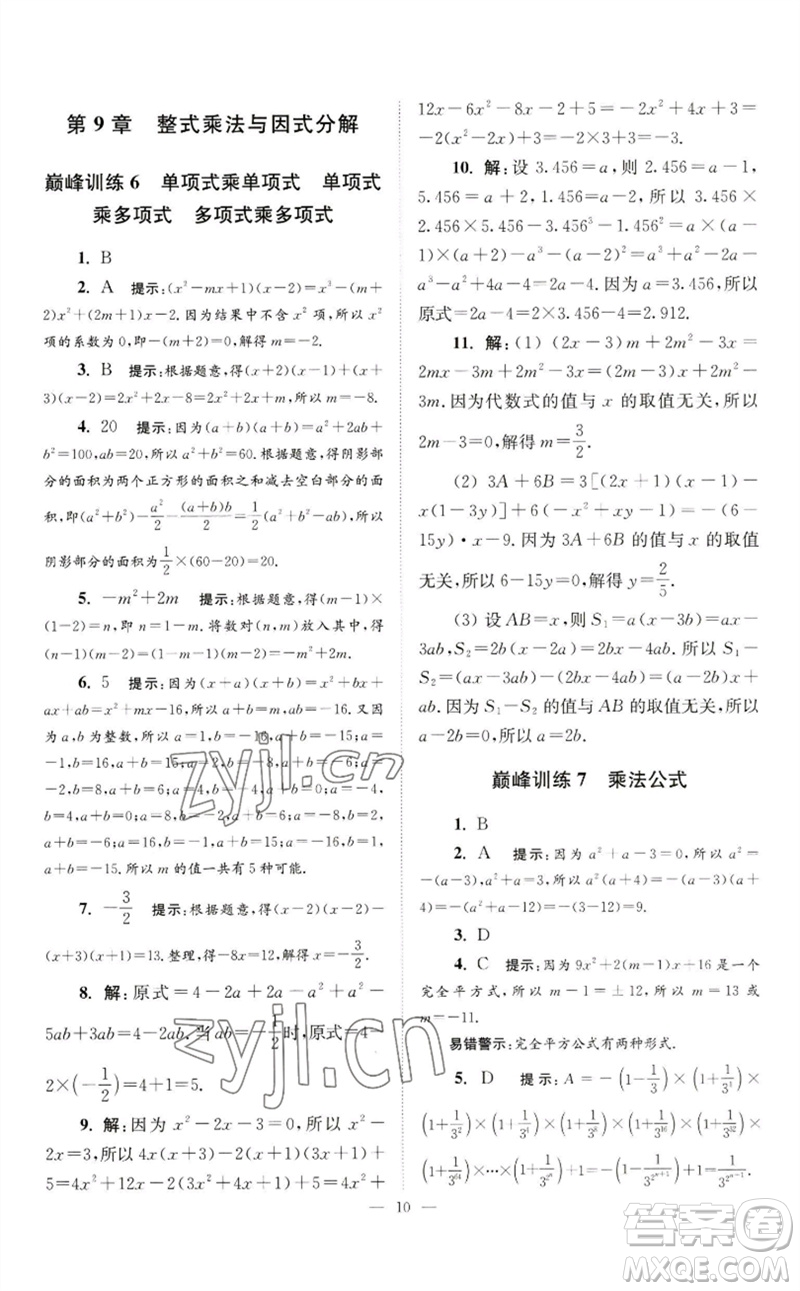 第9章　整式乘法与因式分解
巅峰训练6　单项式乘单项式　单项式
乘多项式　多项式乘多项式
1. B
2. A　提示:(x²-mx+1)(x-2)=x³-(m+
2)x²+(2m+1)x-2. 因为结果中不含 x² 项,所以 x²
项的系数为 0,即-(m+2)=0,解得 m=-2.
3. B　提示:根据题意,得(x+2)(x-1)+(x+
3)(x-2)=2x²+2x-8=2x²+2x+m,所以 m=-8.
4. 20　提示:因为(a+b)(a+b)=a²+2ab+
b²=100,ab=20,所以 a²+b²=60. 根据题意,得阴影部
分的面积为两个正方形的面积之和减去空白部分的面
积,即(a²+b²)-a²/2-(a+b)b/2=1/2(a²+b²-ab),所以
阴影部分的面积为1/2×(60-20)=20.
5. -m²+2m　提示:根据题意,得(m-1)×
(1-2)=n,即 n=1-m. 将数对(m,n)放入其中,得
(n-1)(m-2)=(1-m-1)(m-2)=-m²+2m.
6. 5　提示:因为(x+a)(x+b)=x²+bx+
ax+ab=x²+mx-16,所以 a+b=m,ab=-16. 又因
为 a,b 为整数,所以 a=1,b=-16,a+b=-15;a=
-1,b=16,a+b=15;a=2,b=-8,a+b=-6;a=
-2,b=8,a+b=6;a=4,b=-4,a+b=0;a=-4,
b=4,a+b=0;a=8,b=-2,a+b=6;a=-8,b=2,
a+b=-6;a=16,b=-1,a+b=15;a=-16,b=1,
a+b=-15. 所以 m 的值一共有 5 种可能.
7. -3/2　提示:根据题意,得(x-2)(x-2)-
(x+3)(x+1)=13. 整理,得-8x=12,解得 x=-3/2.
8. 解:原式=4-2a+2a-a²+a²-
5ab+3ab=4-2ab. 当 ab=-1/2时,原式=4-
2×(-1/2)=4+1=5.
9. 解:因为 x²-2x-3=0,所以 x²-
2x=3,所以 4x(x+3)-2(1+x)(3x+1)+
5=4x²+12x-2(3x+1+3x²+x)+5=4x²+
12x-6x²-8x-2+5=-2x²+4x+3=
-2(x²-2x)+3=-2×3+3=-3.
10. 解:设 3.456=a,则 2.456=a-1,
5.456=a+2,1.456=a-2,所以 3.456×
2.456×5.456-3.456³-1.456²=a×(a-
1)×(a+2)-a³-(a-2)²=a³+a²-2a-
a³-a²+4a-4=2a-4. 因为 a=3.456,所以
原式=2a-4=2×3.456-4=2.912.
11. 解:(1) (2x-3)m+2m²-3x=
2mx-3m+2m²-3x=(2m-3)x+2m²-
3m. 因为代数式的值与 x 的取值无关,所以
2m-3=0,解得 m=3/2.
(2) 3A+6B=3[(2x+1)(x-1)-
x(1-3y)]+6(-x²+xy-1)=-(6-
15y)·x-9. 因为 3A+6B 的值与 x 的取值
无关,所以 6-15y=0,解得 y=2/5.
(3) 设 AB=x,则 S₁=a(x-3b)=ax-
3ab,S₂=2b(x-2a)=2bx-4ab. 所以 S₁-
S₂=ax-3ab-(2bx-4ab)=(a-2b)x+
ab. 因为 S₁-S₂ 的值与 AB 的取值无关,所以
a-2b=0,所以 a=2b.
巅峰训练7　乘法公式
1. B
2. A　提示:因为 a²+a-3=0,所以 a²=
-(a-3),所以 a²(a+4)=-(a-3)(a+
4)=-(a²+a-12)=-(3-12)=9.
3. D
4. C　提示:因为 9x²+2(m-1)x+16 是一个
完全平方式,所以 m-1=±12,所以 m=13 或
m=-11.
易错警示:完全平方公式有两种形式.
5. D　提示:A=-(1-1/3)×(1+1/3)×
(1+1/3²)×(1+1/3⁴)×(1+1/3⁸)×(1+1/3¹⁶)×(1+1/3³²)×
(1+1/3⁶⁴)×…×(1+1/3^(2^n))+1/3^(2^(n+1))=-(1-1/3²)×
— 10 —
zyjl.cn
zyjl.cn
答案卷
MXQE.COM